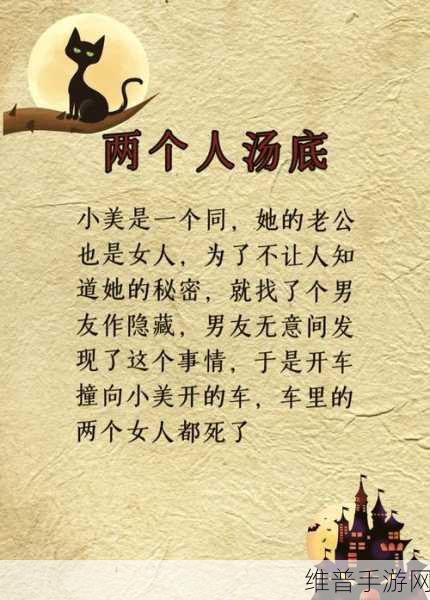 两个人汤底
小美是一个同，她的老公
也是女人，为了不让人知
道她的秘密，就找了个男
友作隐藏，男友无意间发
现了这个事情，于是开车
撞向小美开的车，车里的
两个女人都死了
维普手游网